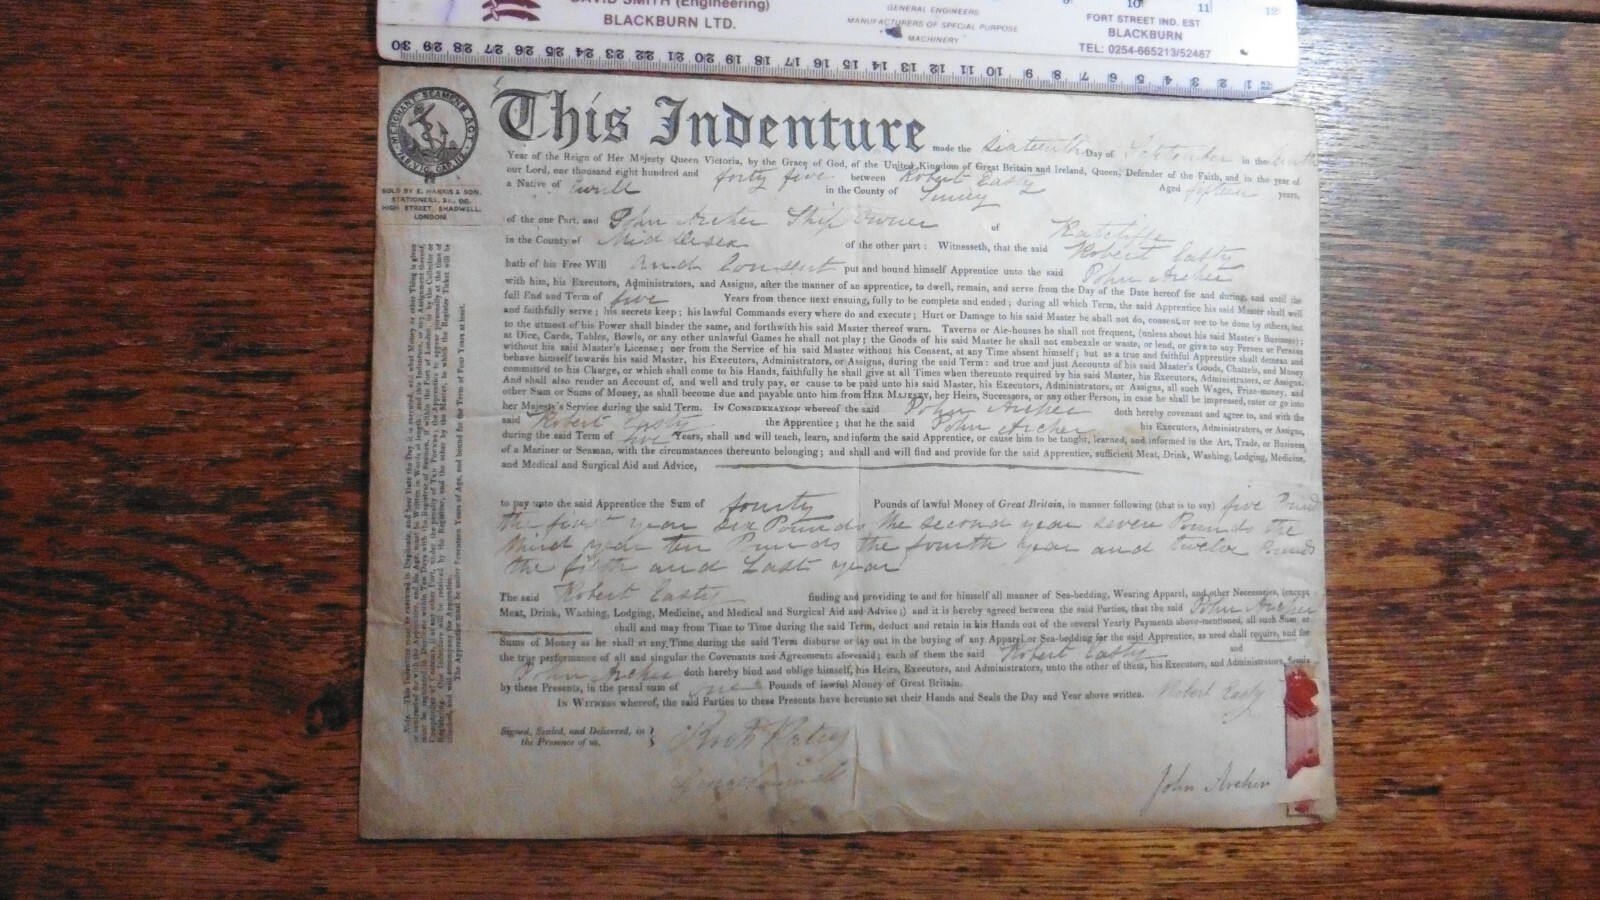 DAVID SMITH (Engineering)
BLACKBURN LTD.
GENERAL ENGINEERS
MANUFACTURERS OF SPECIAL PURPOSE
MACHINERY
FORT STREET IND. EST
BLACKBURN
TEL: 0254-665213/52487
9 10 11 12
30 29 28 27 26 25 24 23 22 21 20 19 18 17 16 15 14 13 12 11 10 9 8 7 6 5 4 3 2 1
MERCHANT SEAMENS ACT
SOLD BY E. HARRIS & SON,
STATIONERS, &c.
HIGH STREET, SHADWELL,
LONDON
This Indenture made the Sixteenth Day of September in the
Year of the Reign of Her Majesty Queen Victoria, by the Grace of God, of the United Kingdom of Great Britain and Ireland, Queen, Defender of the Faith, and in the year of
our Lord, one thousand eight hundred and forty five between Robert Easty Aged fifteen years,
a Native of in the County of
of the one Part, and John Archer Ship Owner of Ratcliffe
in the County of Middlesex of the other part: Witnesseth, that the said Robert Easty
hath of his Free Will and Consent put and bound himself Apprentice unto the said John Archer
with him, his Executors, Administrators, and Assigns, after the manner of an apprentice, to dwell, remain, and serve from the Day of the Date hereof for and during, and until the
full End and Term of five Years from thence next ensuing, fully to be complete and ended; during all which Term, the said Apprentice his said Master shall well
and faithfully serve; his secrets keep; his lawful Commands every where do and execute; Hurt or Damage to his said Master he shall not do, consent, or see to be done by others, but
to the utmost of his Power shall hinder the same, and forthwith his said Master thereof warn. Taverns or Ale-houses he shall not frequent, (unless about his said Master's Business);
at Dice, Cards, Tables, Bowls, or any other unlawful Games he shall not play; the Goods of his said Master he shall not embezzle or waste, or lend, or give to any Person or Persons
without his said Master's License; nor from the Service of his said Master without his Consent, at any Time absent himself; but as a true and faithful Apprentice shall demean and
behave himself towards his said Master, his Executors, Administrators, or Assigns, during the said Term: and true and just Accounts of his said Master's Goods, Chattels, and Money
committed to his Charge, or which shall come to his Hands, faithfully he shall give at all Times when thereunto required by his said Master, his Executors, Administrators, or Assigns.
And shall also render an Account of, and well and truly pay, or cause to be paid unto his said Master, his Executors, Administrators, or Assigns, all such Wages, Prize-money, and
other Sum or Sums of Money, as shall become due and payable unto him from HER MAJESTY, her Heirs, Successors, or any other Person, in case he shall be impressed, enter or go into
her Majesty's Service during the said Term. IN CONSIDERATION whereof the said John Archer doth hereby covenant and agree to, and with the
said Robert Easty the Apprentice; that he the said John Archer his Executors, Administrators, or Assigns,
during the said Term of five Years, shall and will teach, learn, and inform the said Apprentice, or cause him to be taught, learned, and informed in the Art, Trade, or Business,
of a Mariner or Seaman, with the circumstances thereunto belonging; and shall and will find and provide for the said Apprentice, sufficient Meat, Drink, Washing, Lodging, Medicine,
and Medical and Surgical Aid and Advice,
to pay unto the said Apprentice the Sum of fourty Pounds of lawful Money of Great Britain, in manner following (that is to say) five Pounds
the first year Six Pounds the second year seven Pounds the
third year ten Pounds the fourth year and twelve Pounds
the fifth and Last year
The said Robert Easty finding and providing to and for himself all manner of Sea-bedding, Wearing Apparel, and other Necessaries, (except
Meat, Drink, Washing, Lodging, Medicine, and Medical and Surgical Aid and Advice;) and it is hereby agreed between the said Parties, that the said John Archer
shall and may from Time to Time during the said Term, deduct and retain in his Hands out of the several Yearly Payments above-mentioned, all such Sum or
Sums of Money as he shall at any Time during the said Term disburse or lay out in the buying of any Apparel or Sea-bedding for the said Apprentice, as need shall require, and for
the true performance of all and singular the Covenants and Agreements aforesaid; each of them the said Robert Easty and
John Archer doth hereby bind and oblige himself, his Heirs, Executors, and Administrators, unto the other of them, his Executors, and Administrators, firmly
by these Presents, in the penal sum of Pounds of lawful Money of Great Britain.
IN WITNESS whereof, the said Parties to these Presents have hereunto set their Hands and Seals the Day and Year above written. Robert Easty
Signed, Sealed, and Delivered, in
the Presence of us,
John Archer
The Apprentice must be under Seventeen Years of Age, and bound for the Term of Four Years at least.